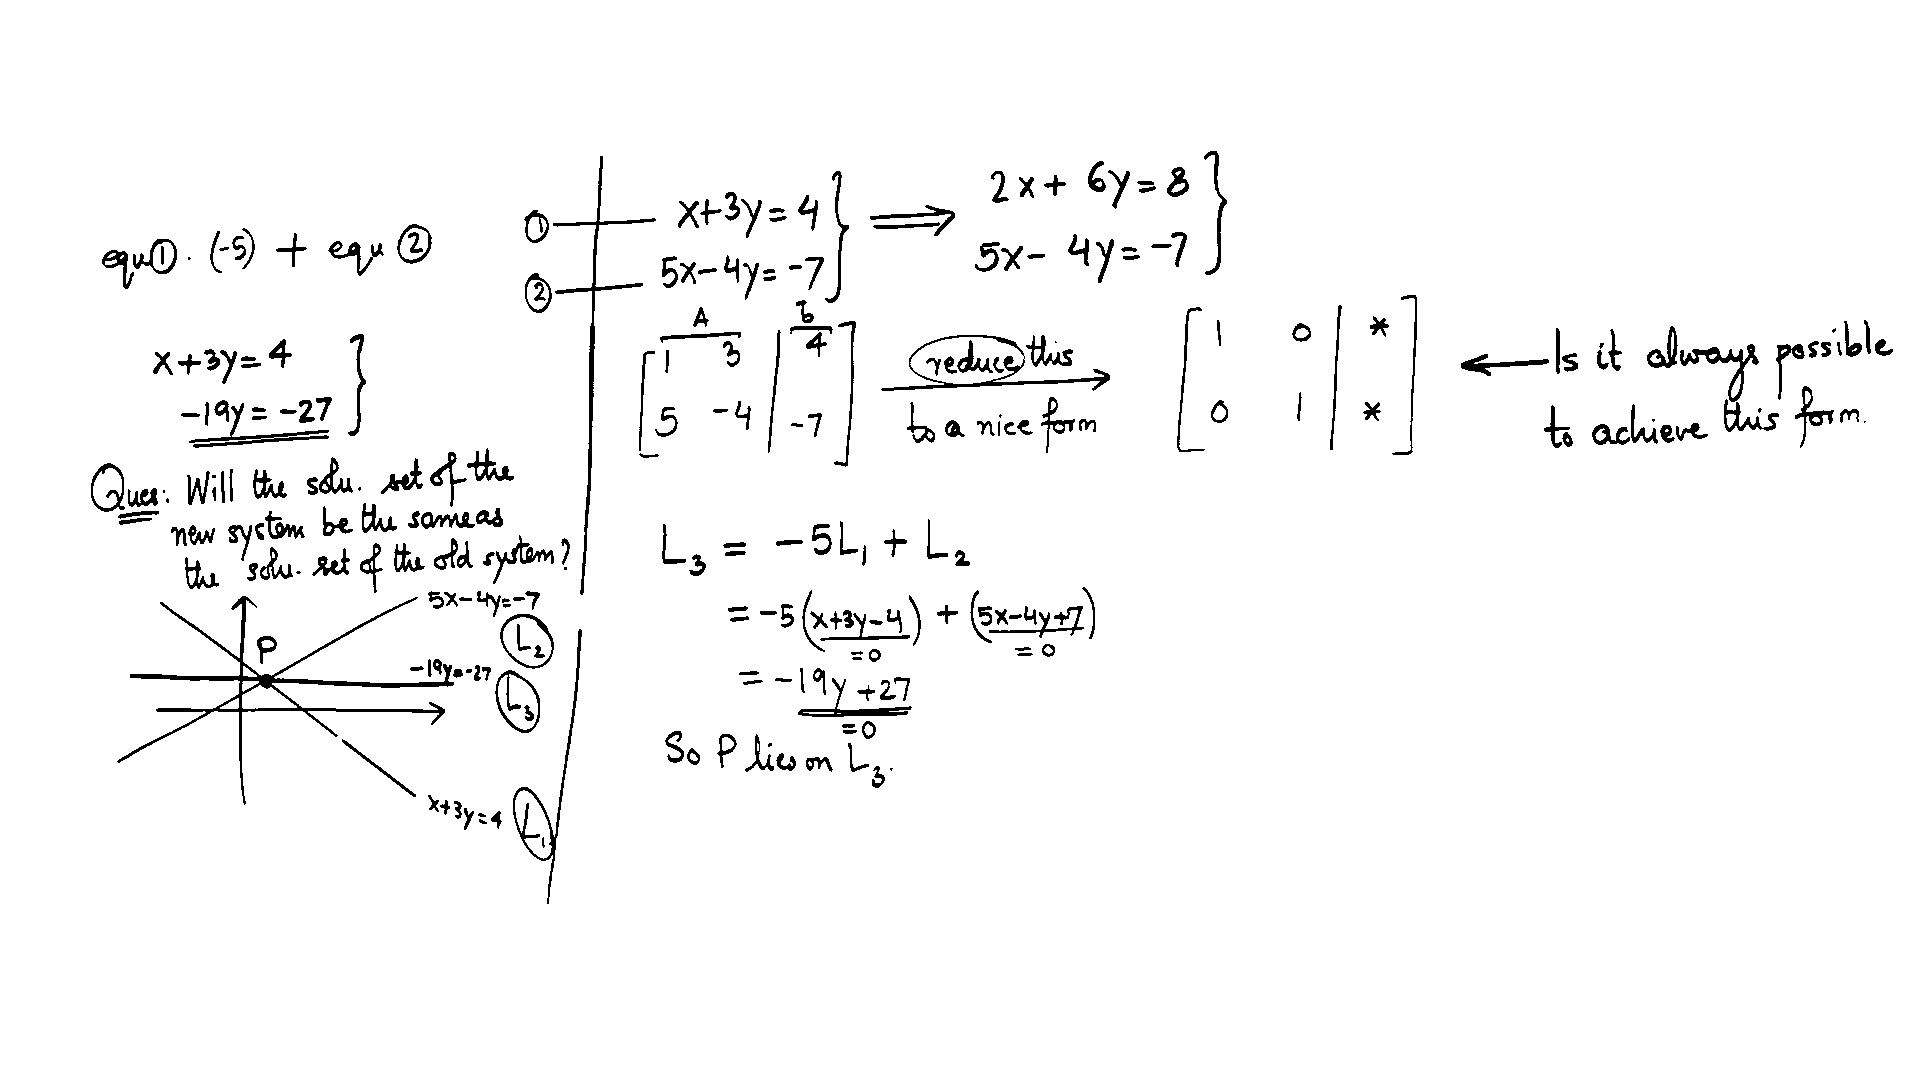 equ①. (-5) + equ ②
x+3y=4
-19y=-27
Ques: Will the solu. set of the
new system be the same as
the solu. set of the old system?
5x-4y=-7
L₂
P
-19y=-27
L₃
x+3y=4
L₁
① x+3y=4 ⟹ 2x+6y=8
② 5x-4y=-7 5x-4y=-7
A b
[1 3 | 4] reduce this [1 0 | *] ← Is it always possible
[5 -4 | -7] to a nice form [0 1 | *] to achieve this form.
L₃ = -5L₁ + L₂
= -5(x+3y-4) + (5x-4y+7)
=0 =0
= -19y+27
=0
So P lies on L₃.